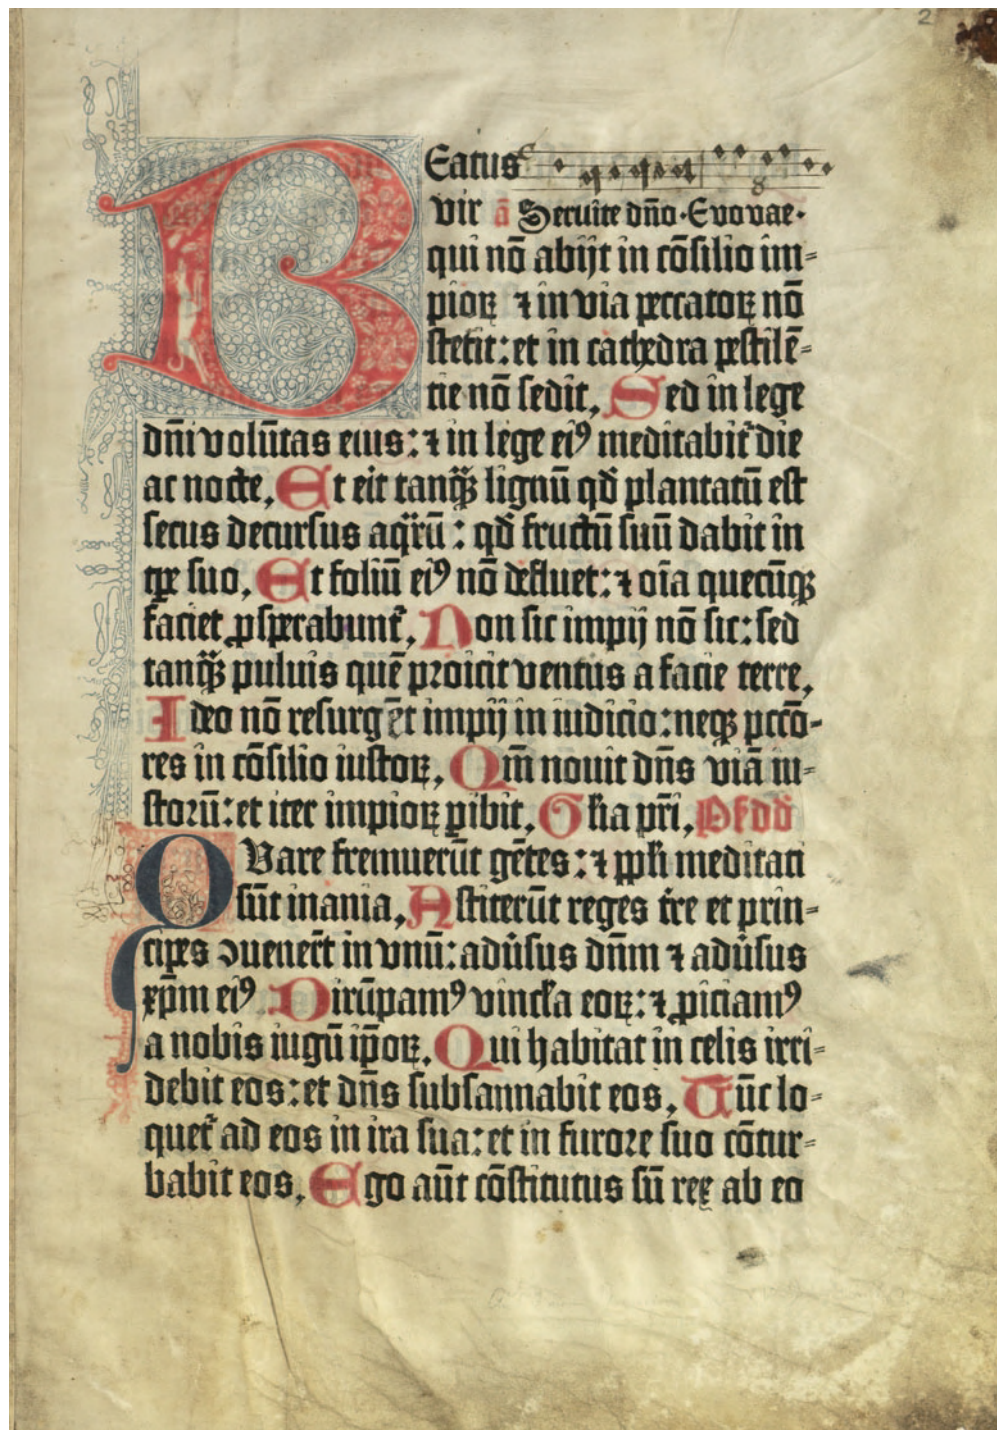 2
BEatus
vir a᷃ Seruite dn̄o·Euouae·
qui nō abijt in cōsilio im=
pioꝝ ⁊ in via peccatoꝝ nō
stetit: et in cathedra pestilē=
tie nō sedit, Sed in lege
dn̄i volūtas eius: ⁊ in lege eiꝰ meditabit᷑ die
ac nocte, Et erit tanqᷓꝫ lignū qd̄ plantatū est
secus decursus aqᷓrū: qd̄ fructū suū dabit in
tꝑe suo, Et foliū eiꝰ nō defluet: ⁊ oīa quecūqꝫ
faciet ꝓsperabunt᷑, Non sic impij nō sic: sed
tanqᷓꝫ puluis quē proicit ventus a facie terre,
Ideo nō resurgēt impij in iudicio: neqꝫ pctō-
res in cōsilio iustoꝝ, Qm̄ nouit dn̄s viā iu=
storū: et iter impioꝝ ꝑibit, Gƚia pr̄i, Ps dd̄
QVare fremuerūt gētes: ⁊ ppƚi meditati
sūt inania, Astiterūt reges tr̄e et prin=
cipes ꝯuenert̄ in vnū: aduͥsus dn̄m ⁊ aduͥsus
xp̄m eiꝰ Dirūpamꝰ vincƚa eoꝝ: ⁊ ꝓiciamꝰ
a nobis iugū ip̄oꝝ, Qui habitat in celis irri=
debit eos: et dn̄s subsannabit eos, Tūc lo=
quet᷑ ad eos in ira sua: et in furore suo cōtur=
babit eos, Ego aūt cōstitutus sū rex ab eo